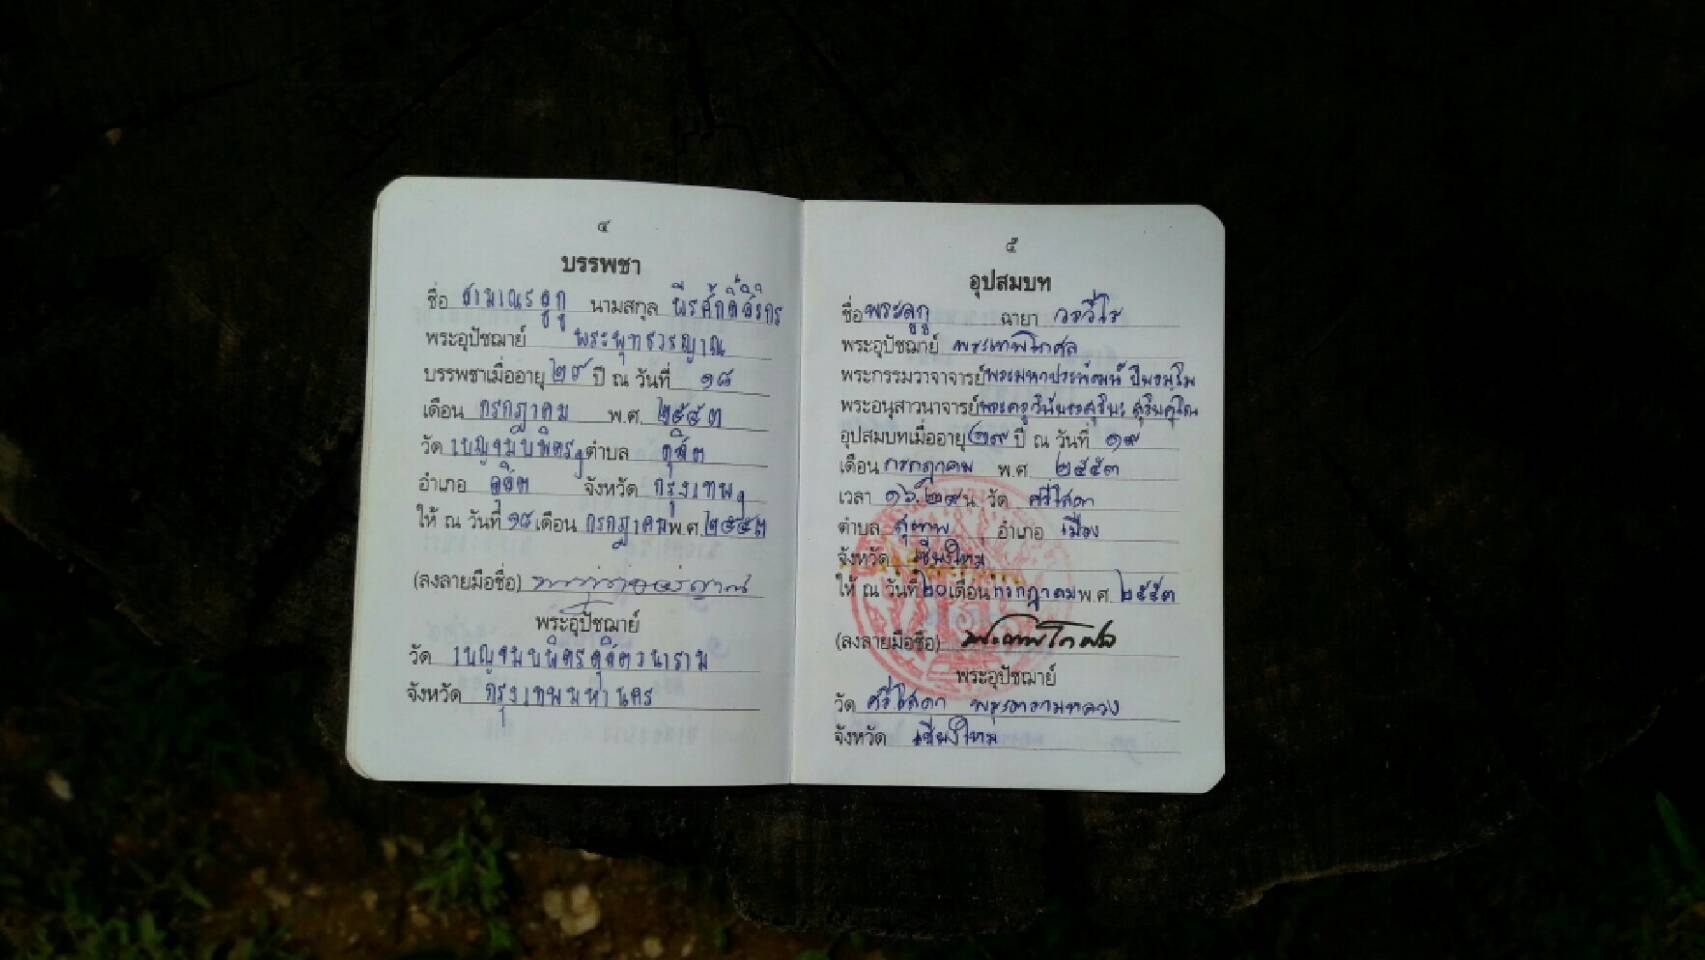 ๔
บรรพชา
ชื่อ สามเณร นามสกุล
พระอุปัชฌาย์ พระพุทธวรญาณ
บรรพชาเมื่ออายุ ๒๙ ปี ณ วันที่ ๑๘
เดือน กรกฎาคม พ.ศ. ๒๕๕๓
วัด เบญจมบพิตรฯ ตำบล ดุสิต
อำเภอ ดุสิต จังหวัด กรุงเทพฯ
ให้ ณ วันที่ ๑๘ เดือน กรกฎาคม พ.ศ. ๒๕๕๓
(ลงลายมือชื่อ)
พระอุปัชฌาย์
วัด เบญจมบพิตรดุสิตวนาราม
จังหวัด กรุงเทพมหานคร
๕
อุปสมบท
ชื่อ ฉายา
พระอุปัชฌาย์ พระเทพโกศล
พระกรรมวาจาจารย์
พระอนุสาวนาจารย์
อุปสมบทเมื่ออายุ ๒๙ ปี ณ วันที่ ๑๙
เดือน กรกฎาคม พ.ศ. ๒๕๕๓
เวลา ๑๖.๒๙ น. วัด ศรีโสดา
ตำบล สุเทพ อำเภอ เมือง
จังหวัด เชียงใหม่
ให้ ณ วันที่ ๒๐ เดือน กรกฎาคม พ.ศ. ๒๕๕๓
(ลงลายมือชื่อ) พระเทพโกศล
พระอุปัชฌาย์
วัด ศรีโสดา พระอารามหลวง
จังหวัด เชียงใหม่